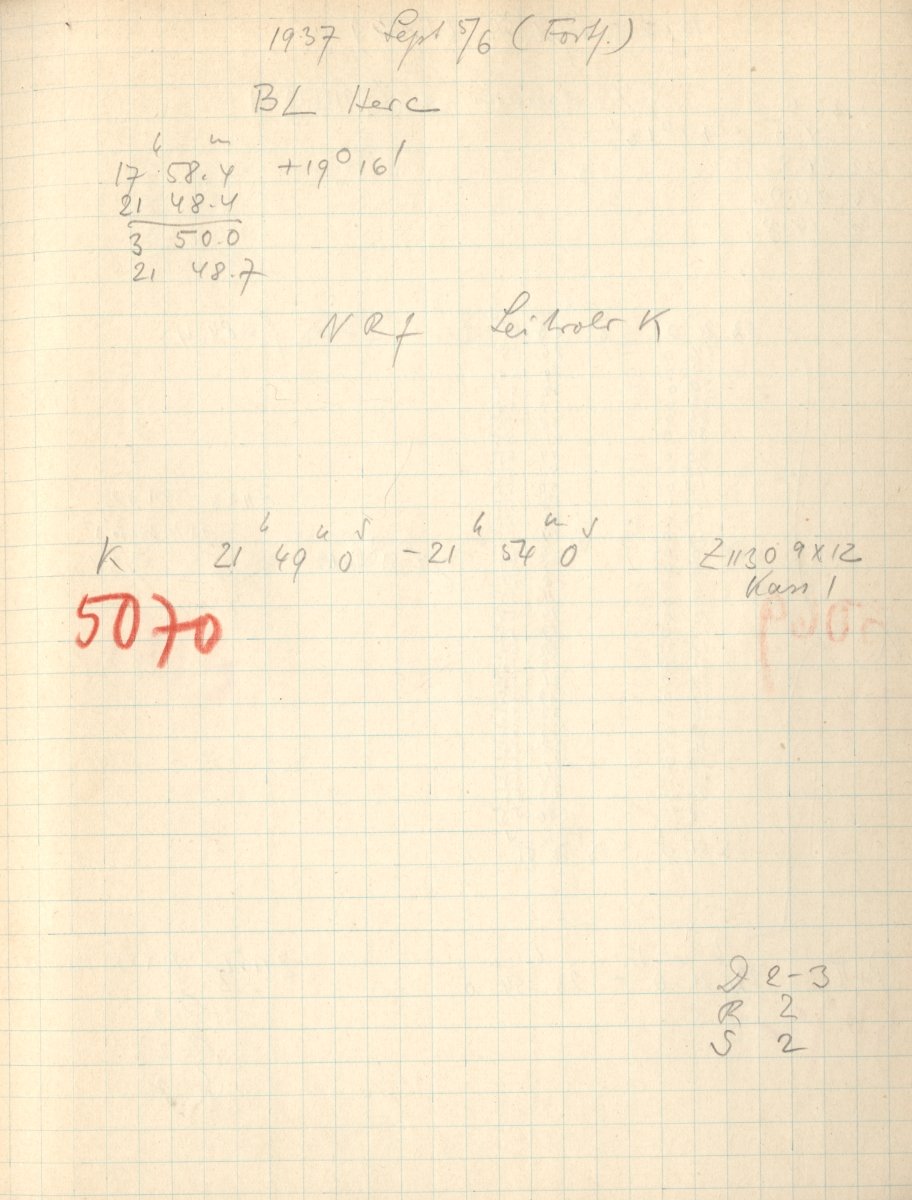 1937 Sept 5/6 (Fortf.)
BL Herc
17h 58.4m +19° 16'
21 48.4
3 50.0
21 48.7
NRf Leitrohr K
K 21h 49m 0s – 21h 54m 0s Z1130 9x12
Kass 1
5070
D 2-3
R 2
S 2